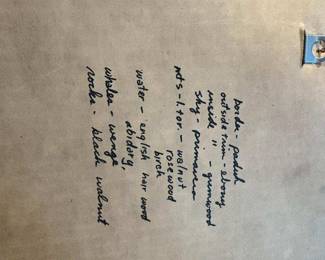 border - paduk
outside trim - ebony
inside " - gumwood
sky - primavera
mts - l. to r. - walnut
rosewood
birch
water - english hair wood
whales - wenge
rocks - black walnut